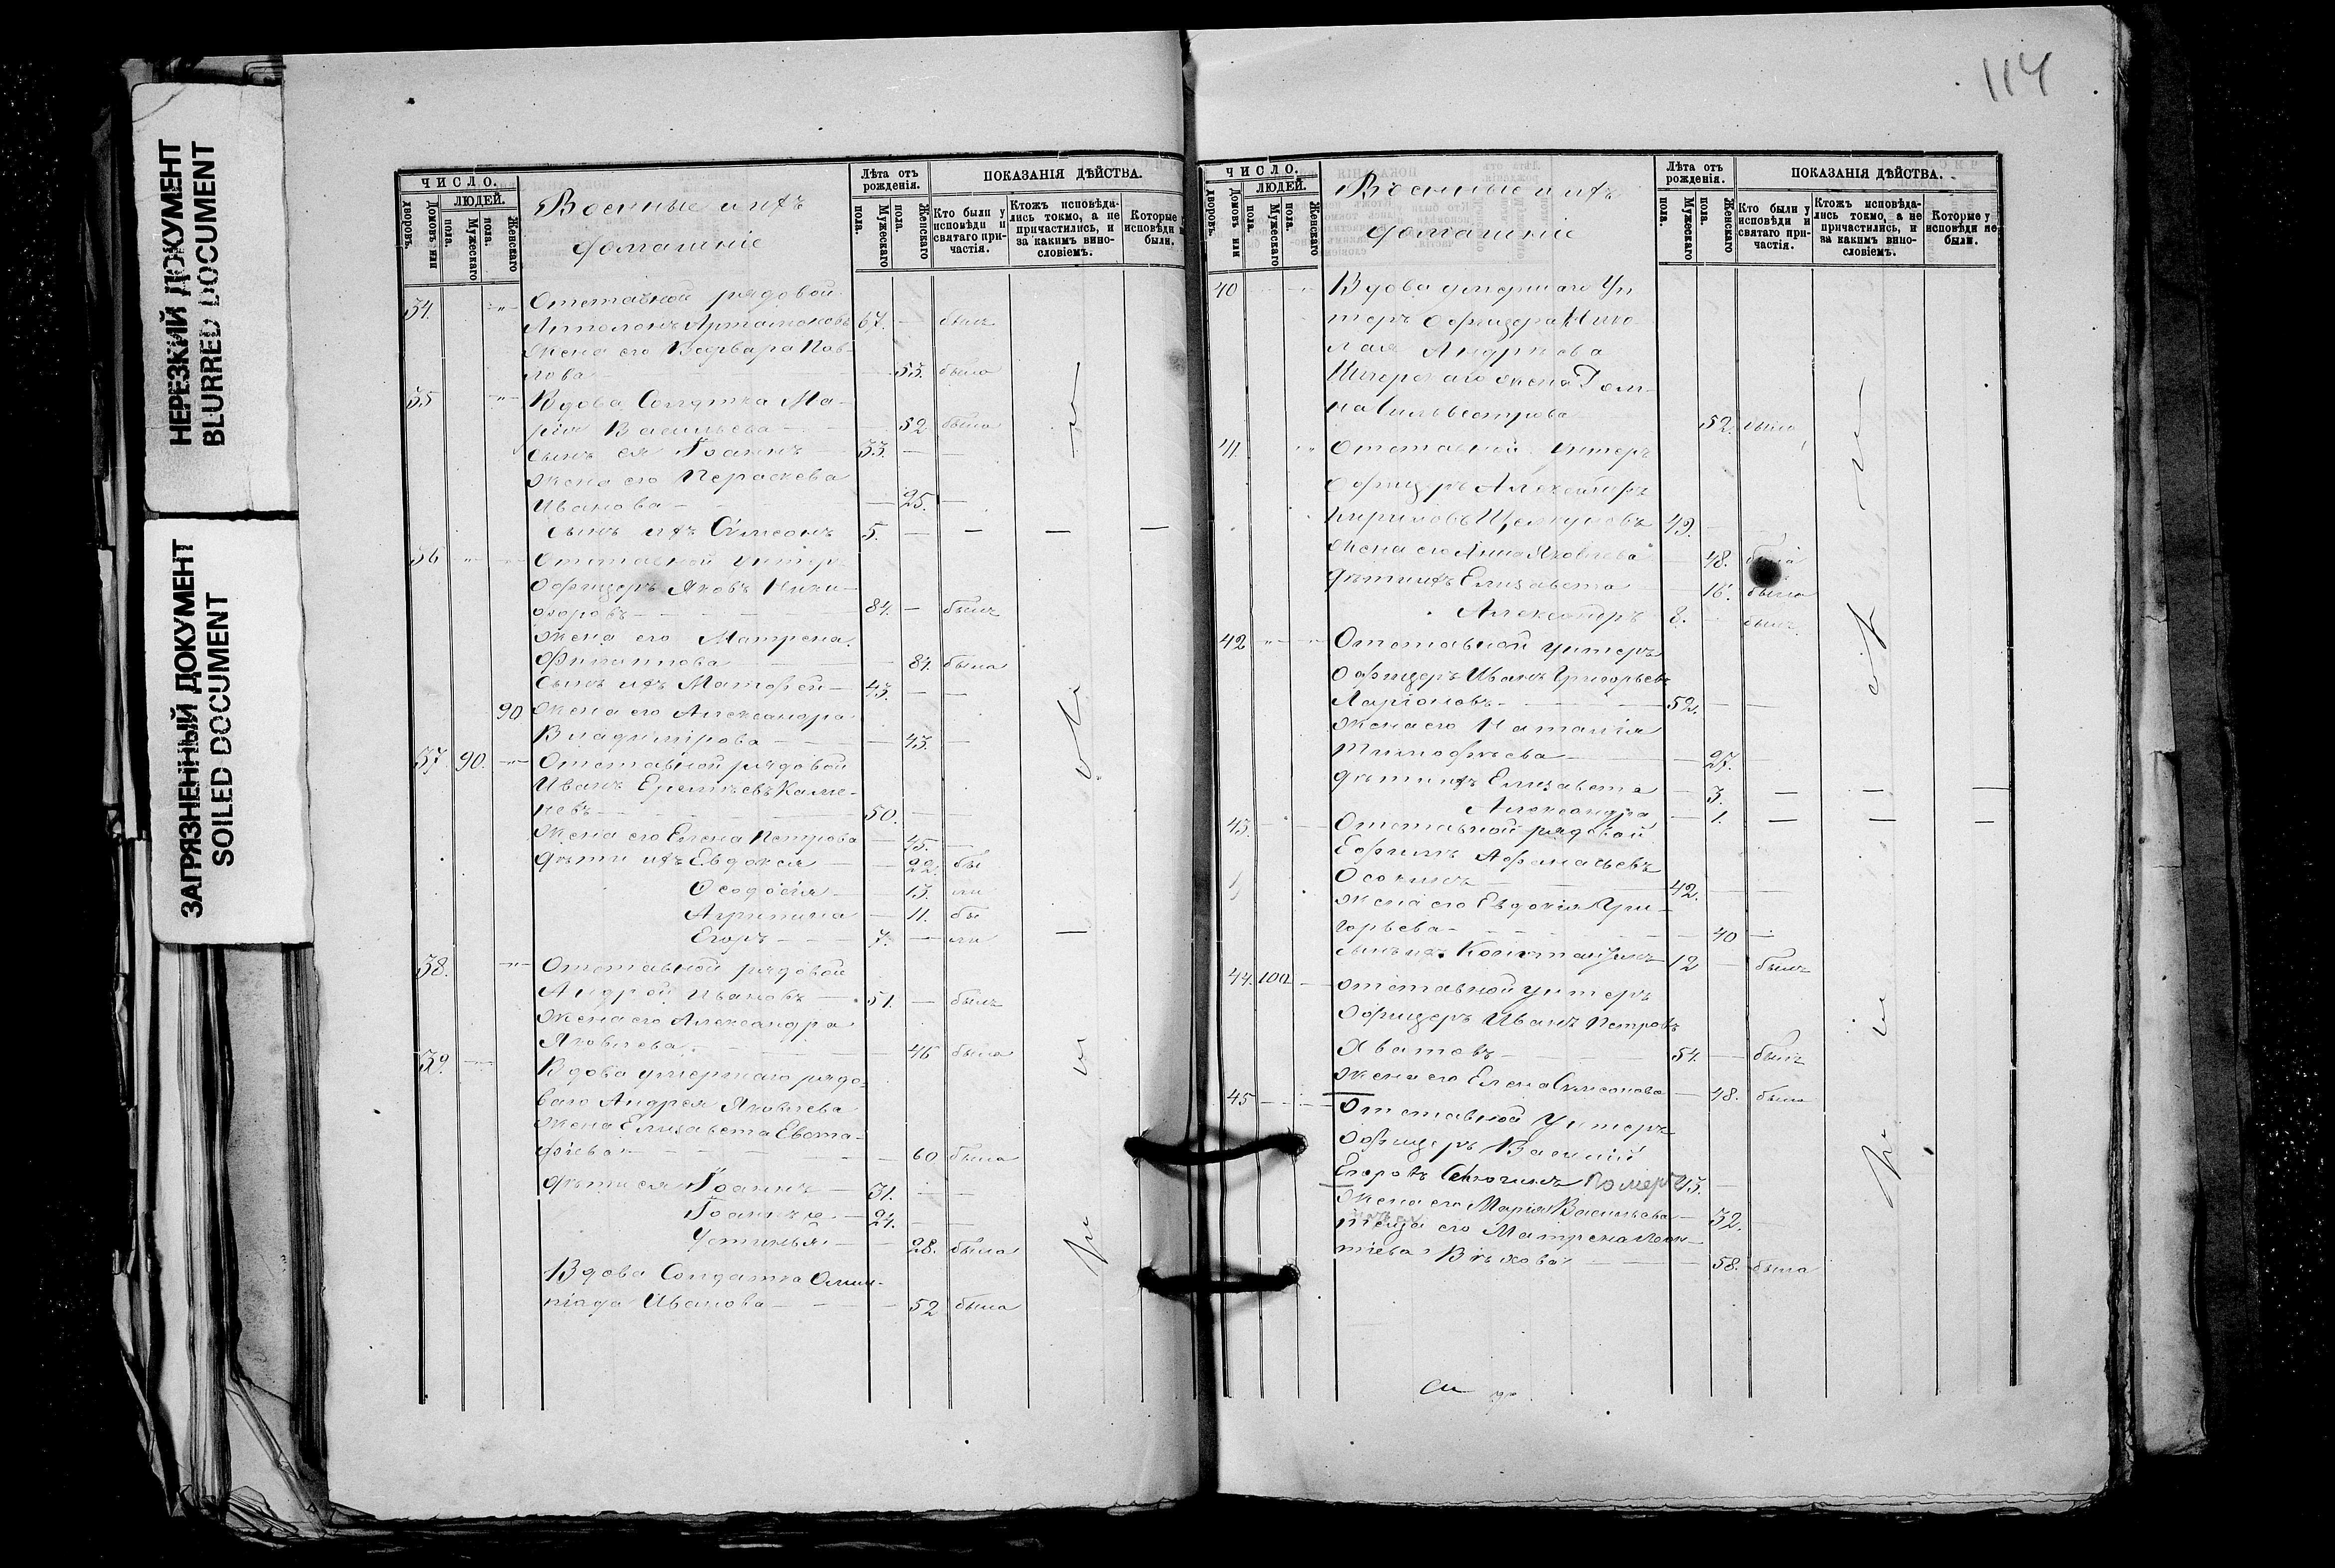 НЕРЕЗКИЙ ДОКУМЕНТ
BLURRED DOCUMENT
ЗАГРЯЗНЕННЫЙ ДОКУМЕНТ
SOILED DOCUMENT
ЧИСЛО.
ЛЮДЕЙ.
Домовъ или дворовъ.
Мужескаго пола.
Женскаго пола.
Военные и ихъ
домашніе
Лѣта отъ рожденія.
Мужескаго пола.
Женскаго пола.
ПОКАЗАНІЯ ДѢЙСТВА.
Кто были у исповѣди и святаго причастія.
Ктожъ исповѣдались токмо, а не причастились, и за какимъ винословіемъ.
Которые исповѣди были.
34. Отставной рядовой
Артамоновъ 67. — былъ
жена его Варвара Пав-
лова 53. была
35 Вдова Солдатка Ма-
рія Васильева 52 была
сынъ ея Іоаннъ 33. —
жена его Пераскева
Иванова — 25. —
сынъ ихъ Сѷмеонъ 5. — — — —
36 Отставной унтеръ
Офицеръ Яковъ Ники-
форовъ 84. — былъ
жена его Матрена
Филиппова 84. была
сынъ ихъ Матфей — 43. — —
90 жена его Александра
Владимірова — 43. —
37 90. Отставной рядовой
Иванъ Ереміевъ Каме-
невъ 50. — —
жена его Елена Петрова — 45. —
дѣти ихъ Евдокія — 22. бы
Ѳеодосія — 13. ли
Агрипина — 11. бы
Егоръ — 7. — ли —
38. Отставной рядовой
Андрей Ивановъ — 51. — былъ
жена его Александра
Яковлева — 46 была
39. Вдова умершаго рядо-
ваго Андрея Яковлева
жена Елизавета Евста-
фіева — 60 была
дѣти ея Іоаннъ — 31. — —
Іоаннъ — 24. — —
Устинья — 28. была
Вдова Солдатка Олим-
піада Иванова — 52 была
114
ЧИСЛО.
ЛЮДЕЙ.
Домовъ или дворовъ.
Мужескаго пола.
Женскаго пола.
Военные и ихъ
домашніе
Лѣта отъ рожденія.
Мужескаго пола.
Женскаго пола.
ПОКАЗАНІЯ ДѢЙСТВА.
Кто были у исповѣди и святаго причастія.
Ктожъ исповѣдались токмо, а не причастились, и за какимъ винословіемъ.
Которые у исповѣди не были.
40 Вдова умершаго Ун
теръ офицера Нико-
лая Андреева
жена Дом-
на Сильвестрова 52. была
41. Отставной унтеръ
Офицеръ Александръ
Кириловъ 49. —
жена его Анна Яковлева — 48. была
дѣти ихъ Елизавета — 16. была
Александръ 8. — былъ
42 Отставной унтеръ
Офицеръ Иванъ Григорьевъ
Ларіоновъ — 52. — —
жена его Наталія
Тимофѣева — 27. —
дѣти ихъ Елизавета — 3. — — —
Александра — 1. — — —
43. Отставной рядовой
Ефимъ Афанасьевъ
Осокинъ 42. — —
жена его Евдокія Гри-
горьева — 40 —
сынъ ихъ Константинъ 12 — былъ
44. 100. отставной унтеръ
Офицеръ Иванъ Петровъ
Хватовъ — 54. — былъ
жена его Елена Сѷмеонова — 48. была
45 Отставной Унтеръ
Офицеръ Василий
Егоровъ помер 43. —
жена его Марія Васильева — 32. —
теща его Матрена
тіева — 58. была